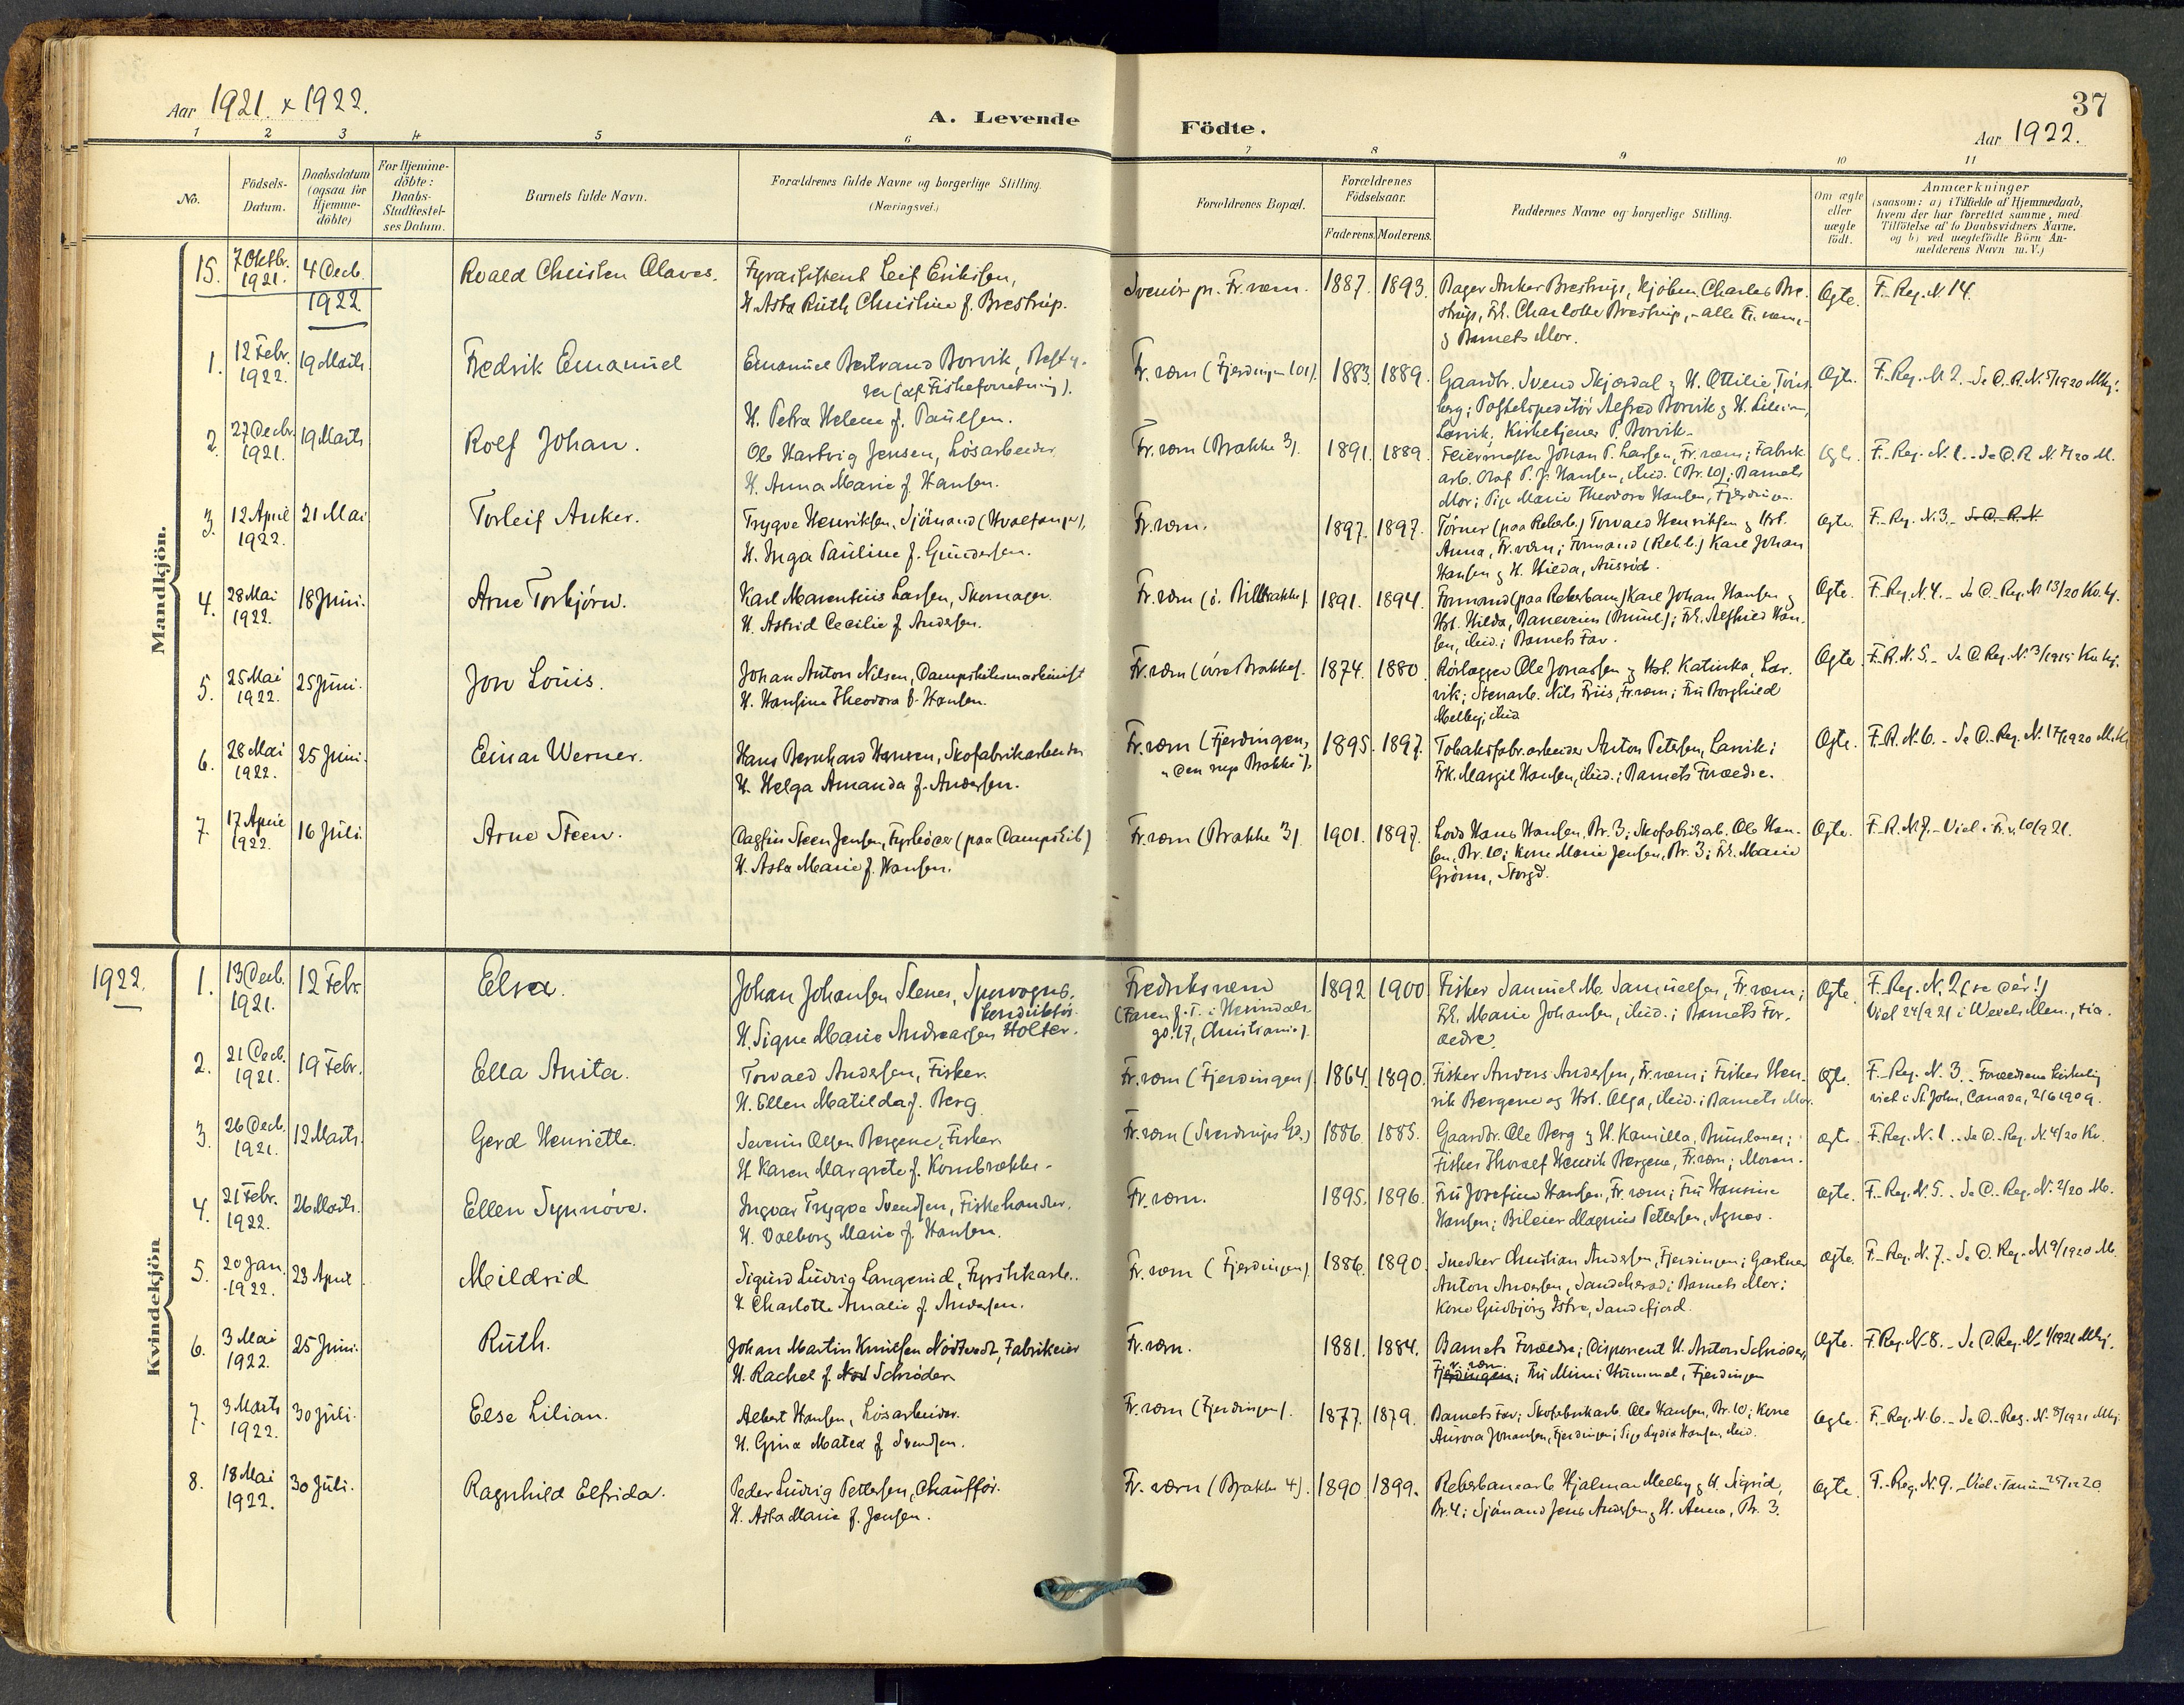 37
Aar 1921 x 1922.
A. Levende
Födte.
Aar 1922.
1 2 3 4 5 6 7 8 9 10 11
No.
Födsels-
Datum.
Daabsdatum
(ogsaa for
Hjemme-
döbte)
For Hjemme-
döbte:
Daabs-
Stadfæstel-
ses Datum.
Barnets fulde Navn.
Forældrenes fulde Navne og borgerlige Stilling.
(Næringsvei.)
Forældrenes Bopæl.
Forældrenes
Födselsaar.
Faderens. Moderens.
Faddernes Navne og borgerlige Stilling.
Om ægte
eller
uægte
födt.
Anmærkninger
(saasom: a) i Tilfælde af Hjemmedaab,
hvem der har forrettet samme, med
Tilföielse af to Daabsvidners Navne.
og b) ved uægtefödte Börn An-
melderens Navn m.V.)
Mandkjön.
15. 7 Oktbr. 1921. 4 Decb. Roald Christen Olaves. Fyrassistent Leif Eriksen,
H. Asta Ruth Christine f. Brestrup.
Svenör pr. Fr.værn. 1887. 1893. Anker Brestrup, Charles Bre-
strup, Frk. Charlotte Brestrup, - alle Fr.værn, -
g Barnets Mor.
Ægte. F. Reg. N. 14.
1922
1. 12 Febr. 1922. 19 Marts Fredrik Emanuel Emanuel Bertrand Borvik, Besty-
rer (af Fiskeforretning).
H. Petra Helene f. Paulsen.
Fr. værn (Fjerdingen 101). 1883. 1889. Gaardbr. Svend Skjørdal g H. Ottilie, Töns-
berg; Postekspeditör Alfred Borvik g H.
Larvik; Kirketjener P. Borvik.
Ægte. F. Reg. N. 2. - Se D. R. N. 5/1920 Mkj.
2. 27 Decbr. 1921. 19 Marts Rolf Johan. Ole Hartvig Jensen, Lösarbeider.
H. Anna Marie f. Hansen.
Fr. værn (Brakke 3). 1891. 1889. Feiermester Johan P. Larsen, Fr. værn; Fabrik-
arb. Olaf P. J. Hansen, ibid. (Br. 10); Barnets
Mor; Pige Marie Theodora Hansen, Fjerdingen.
Ægte. F. Reg. N. 1. - Se D. R. N. 7/20 M.
3. 12 April 1922. 21 Mai Torleif Anker. Trygve Henriksen, Sjömand (Hvalfanger),
H. Inga Pauline f. Gundersen.
Fr. værn. 1897. 1897. Törner (paa Reberb.) Torvald Henriksen g Hst.
Anna, Fr. værn; Formand (Reb.b.) Karl Johan
Hansen g H. Hilda,
Ægte. F. Reg. N. 3. - Se D. R. N.
4. 28 Mai 1922. 18 Juni. Arne Torbjörn. Karl Marentius Larsen, Skomager.
H. Astrid Cecilie f. Andersen.
Fr. værn 1891. 1894. Formand (paa Reberbanen) Karl Johan Hansen g
Hst. Hilda, Frk. Alfhild Han-
sen, ibid.; Barnets Far.
Ægte. F. Reg. N. 4. - Se D. Reg. N 13/20 Kv. kj.
5. 25 Mai 1922. 25 Juni. Jon Louis. Johan Anton Nilsen, Dampskibsmaskinist
H. Hansine Theodora f. Hansen.
Fr. værn (övre Brakke). 1874. 1880. Rörlægger Ole Jonassen g Hst. Katinka, Lar-
vik; Stenarb. Nils Friis, Fr. værn; Fru Borghild
Melby, ibid
Ægte F. R. N. 5. - Se D. Reg. N. 3/1915 Kv. kj.
6. 28 Mai 1922. 25 Juni. Einar Werner. Hans Bernhard Hansen, Skofabrikarbeider
H. Helga Amanda f. Andersen.
Fr. værn (Fjerdingen,
"den nye Brakke"). 1895. 1897. Tobaksfabr. arbeider Anton Petersen, Larvik;
Frk. Margit Hansen, ibid.; Barnets Forældre.
Ægte. F. R. N. 6. - Se D. Reg. N. 17/1920 M.k.
7. 17 April 1922. 16 Juli. Arne Steen. Dagfin Steen Jensen, Fyrböder (paa Dampskib)
H. Asta Marie f. Hansen.
Fr. værn (Brakke 3). 1901. 1897. Lods Hans Hansen, Br. 3; Skofabrikarb. Ole Han-
sen, Br. 10; Kone Marie Jensen, Br. 3; Frk. Marie
Grönn, Storgd.
Ægte. F. R. N. 7. - Viet i Fr. v. 10/9 21.
Kvindekjön
1922.
1. 13 Decb. 1921. 12 Febr. Elsa. Johan Johansen Slenes, Sporvogns-
konduktör.
H. Signe Marie Andreassen Holter.
Fredriksværn
Christiania). 1892 1900 Fisker Samuel M. Samuelsen, Fr. værn;
Frk. Marie Johansen, ibid.; Barnets For-
ældre.
Ægte. F. Reg. N. 2 (se dér!)
Viet 24/9 21 i
2. 21 Decb. 1921. 19 Febr. Ella Anita. Torvald Andersen, Fisker.
H. Ellen Matilda f. Berg.
Fr. værn (Fjerdingen). 1864. 1890. Fisker Anders Andersen, Fr. værn; Fisker Hen-
rik Bergene og Hst. Olga, ibid.; Barnets Mor.
Ægte. F. Reg. N. 3. - Forældrene kirkelig
viet i St. John, Canada, 2/6 1909.
3. 26 Decb. 1921. 12 Marts. Gerd Henriette. Severin Olsen Bergene, Fisker.
H. Karen Margrete f. Kornbrække -
Fr. værn (Sverdrups Gd.) 1886. 1885. Gaardbr. Ole Berg g H. Kamilla, Brunlanes;
Fisker Thoralf Henrik Bergene, Fr. værn; Moren.
ægte. F. Reg. N. 1. - Se D. Reg. N. 4/20 Kv.
4. 21 Febr. 1922. 26 Marts. Ellen Synnöve. Ingvar Trygve Svendsen, Fiskehandler.
H. Valborg Marie f. Hansen.
Fr. værn. 1895. 1896. Fru Josefine Hansen, Fr. værn; Fru Hansine
Hansen; Bileier Magnus Pettersen, Agnes.
ægte. F. Reg. N. 5. - Se D. Reg. N. 2/20 M.
5. 20 Jan. 1922. 23 April Meildrid Sigurd Ludvig Langerud,
H. Charlotte Amalie f. Andersen.
Fr. værn (Fjerdingen). 1886. 1890. Snedker Christian Andersen, Fjerdingen; Gartner
Anton Andersen, Sandeherad; Barnets Mor;
Kone Gudbjörg Istre, Sandefjord.
ægte. F. Reg. N. 7. - Se D. Reg. N 9/1920 M.
6. 3 Mai 1922. 25 Juni. Ruth. Johan Martin Knutsen Nödtvedt, Fabrikeier
H. Rachel f. Schröder
Fr. værn. 1881. 1884. Barnets Forældre; Disponent H. Anton Schröder,
Fr. værn; Fru Mimi Hummel, Fjerdingen
Ægte. F. Reg. N. 8. - Se D. Reg. N. 1/1921 Mkj.
7. 3 Marts 1922. 30 Juli. Else Lilian. Albert Hansen, Lösarbeider.
H. Gina Matea f. Svendsen.
Fr. værn (Fjerdingen). 1877. 1879. Barnets Far; Skofabrikarb. Ole Hansen, Br. 10; Kone
Aurora Johansen, Fjerdingen; Pige Lydia Hansen, ibid.
Ægte. F. Reg. N. 6. - Se D. Reg. N. 8/1921 Mkj.
8. 18 Mai 1922. 30 Juli. Ragnhild Elfrida. Peder Ludvig Pettersen, Chaufför.
H. Asta Marie f. Jensen.
Fr. værn (Brakke 4). 1890. 1899. Reberbanearb. Hjalmar Melby g H. Sigrid,
Br. 4; Sjömand Jens Andersen g H. Anna, Br. 3.
Ægte. F. Reg. N. 9. - Viet i Tanum 25/12 20